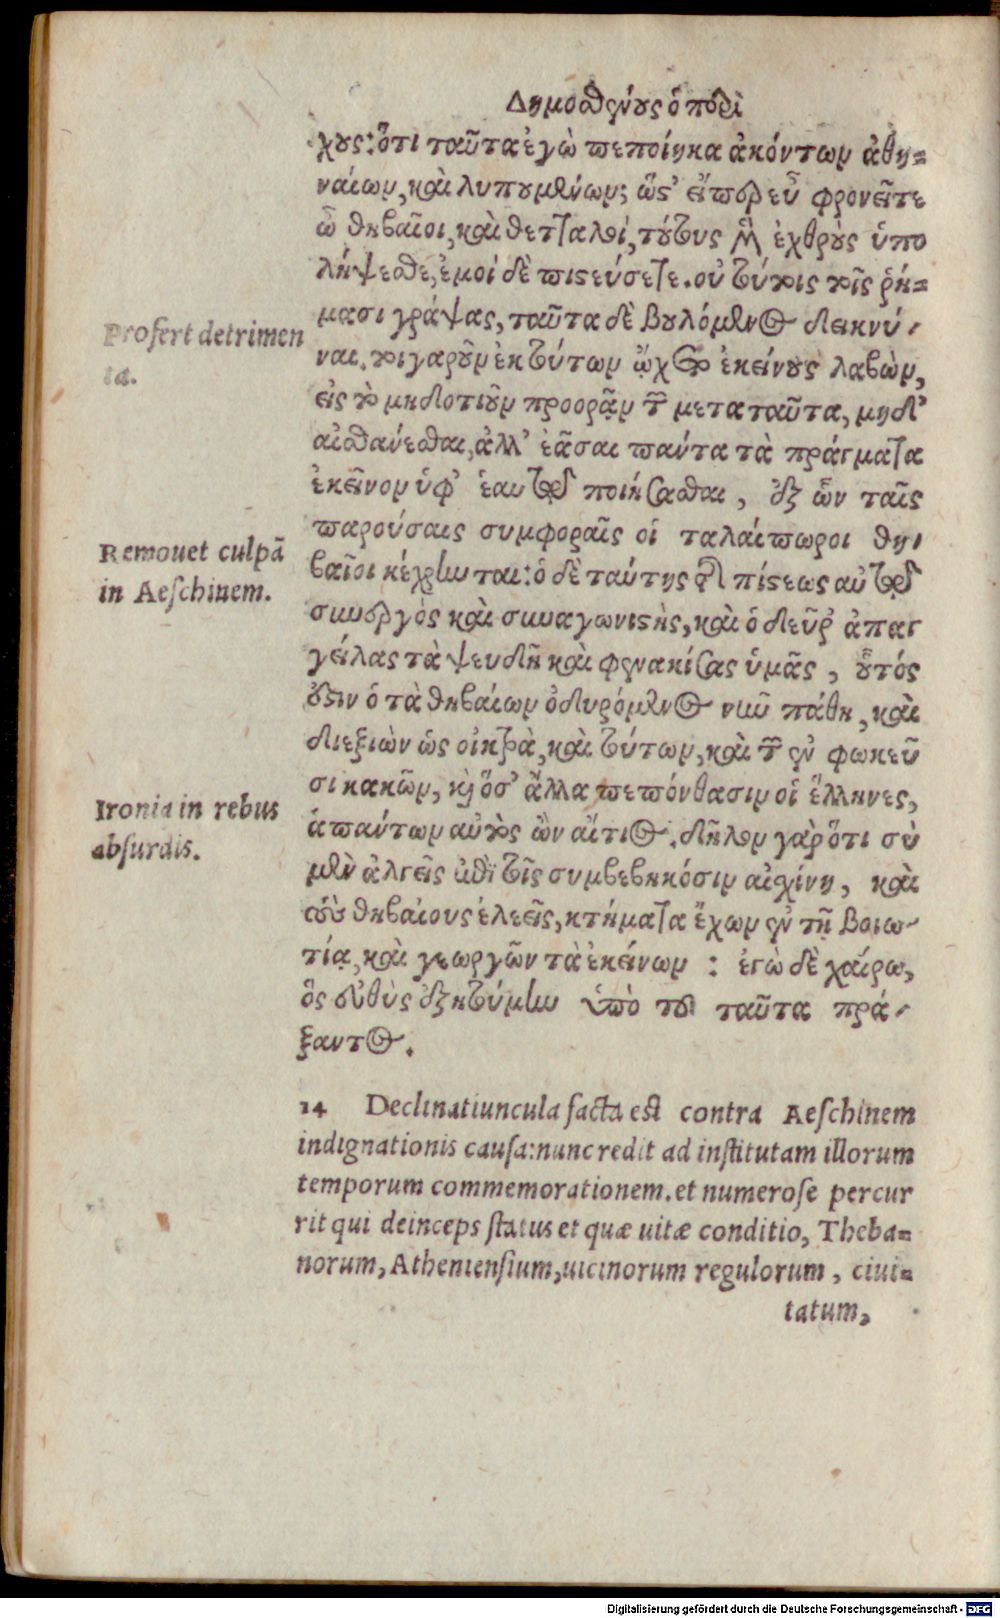 Δημοσθένους ὁ περὶ
χους: ὅτι ταῦτα ἐγὼ πεποίηκα ἀκόντων ἀθη=
ναίων, καὶ λυπουμένων; ὥστ' εἴπερ εὖ φρονεῖτε
ὦ θηβαῖοι, καὶ θετταλοί, τούτους μὲν ἐχθροὺς ὑπο
λήψεσθε, ἐμοὶ δὲ πιστεύσετε. οὐ τούτοις τοῖς ῥή=
μασι γράψας, ταῦτα δὲ βουλόμενος δεικνύ-
ναι. τοιγαροῦν ἐκ τούτων ᾤχετο ἐκείνους λαβὼν,
εἰς τὸ μηδοτιοῦν προορᾷν τῶν μετὰ ταῦτα, μηδ'
αἰσθάνεσθαι, ἀλλ' ἐᾶσαι πάντα τὰ πράγματα
ἐκεῖνον ὑφ' ἑαυτῷ ποιήσασθαι, ἐξ ὧν ταῖς
παρούσαις συμφοραῖς οἱ ταλαίπωροι θη-
βαῖοι κέχρηνται: ὁ δὲ ταύτης τῆς πίστεως αὐτῷ
συνεργὸς καὶ συναγωνιστὴς, καὶ ὁ δεῦρ' ἀπαγ
γείλας τὰ ψευδῆ καὶ φενακίσας ὑμᾶς, οὗτός
ἐστιν ὁ τὰ θηβαίων ὀδυρόμενος νῦν πάθη, καὶ
διεξιὼν ὡς οἰκτρὰ, καὶ τούτων, καὶ τῶν ἐν φωκεῦ
σι κακῶν, καὶ ὅσ' ἄλλα πεπόνθασιν οἱ ἕλληνες,
ἁπάντων αὐτὸς ὢν αἴτιος. δῆλον γὰρ ὅτι σὺ
μὲν ἀλγεῖς ἐπὶ τοῖς συμβεβηκόσιν αἰσχίνη, καὶ
τοὺς θηβαίους ἐλεεῖς, κτήματα ἔχων ἐν τῇ βοιω-
τίᾳ, καὶ γεωργῶν τὰ ἐκείνων: ἐγὼ δὲ χαίρω,
ὃς εὐθὺς ἐξῃτούμην ὑπὸ τοῦ ταῦτα πρά-
ξαντος.
Profert detrimen
ta.
Remouet culpã
in Aeschinem.
Ironia in rebus
absurdis.
14 Declinatiuncula facta est contra Aeschinem
indignationis causa: nunc redit ad institutam illorum
temporum commemorationem. et numerose percur
rit qui deinceps status et quæ uitæ conditio, Theba=
norum, Atheniensium, uicinorum regulorum, ciui=
tatum,
Digitalisierung gefördert durch die Deutsche Forschungsgemeinschaft - DFG